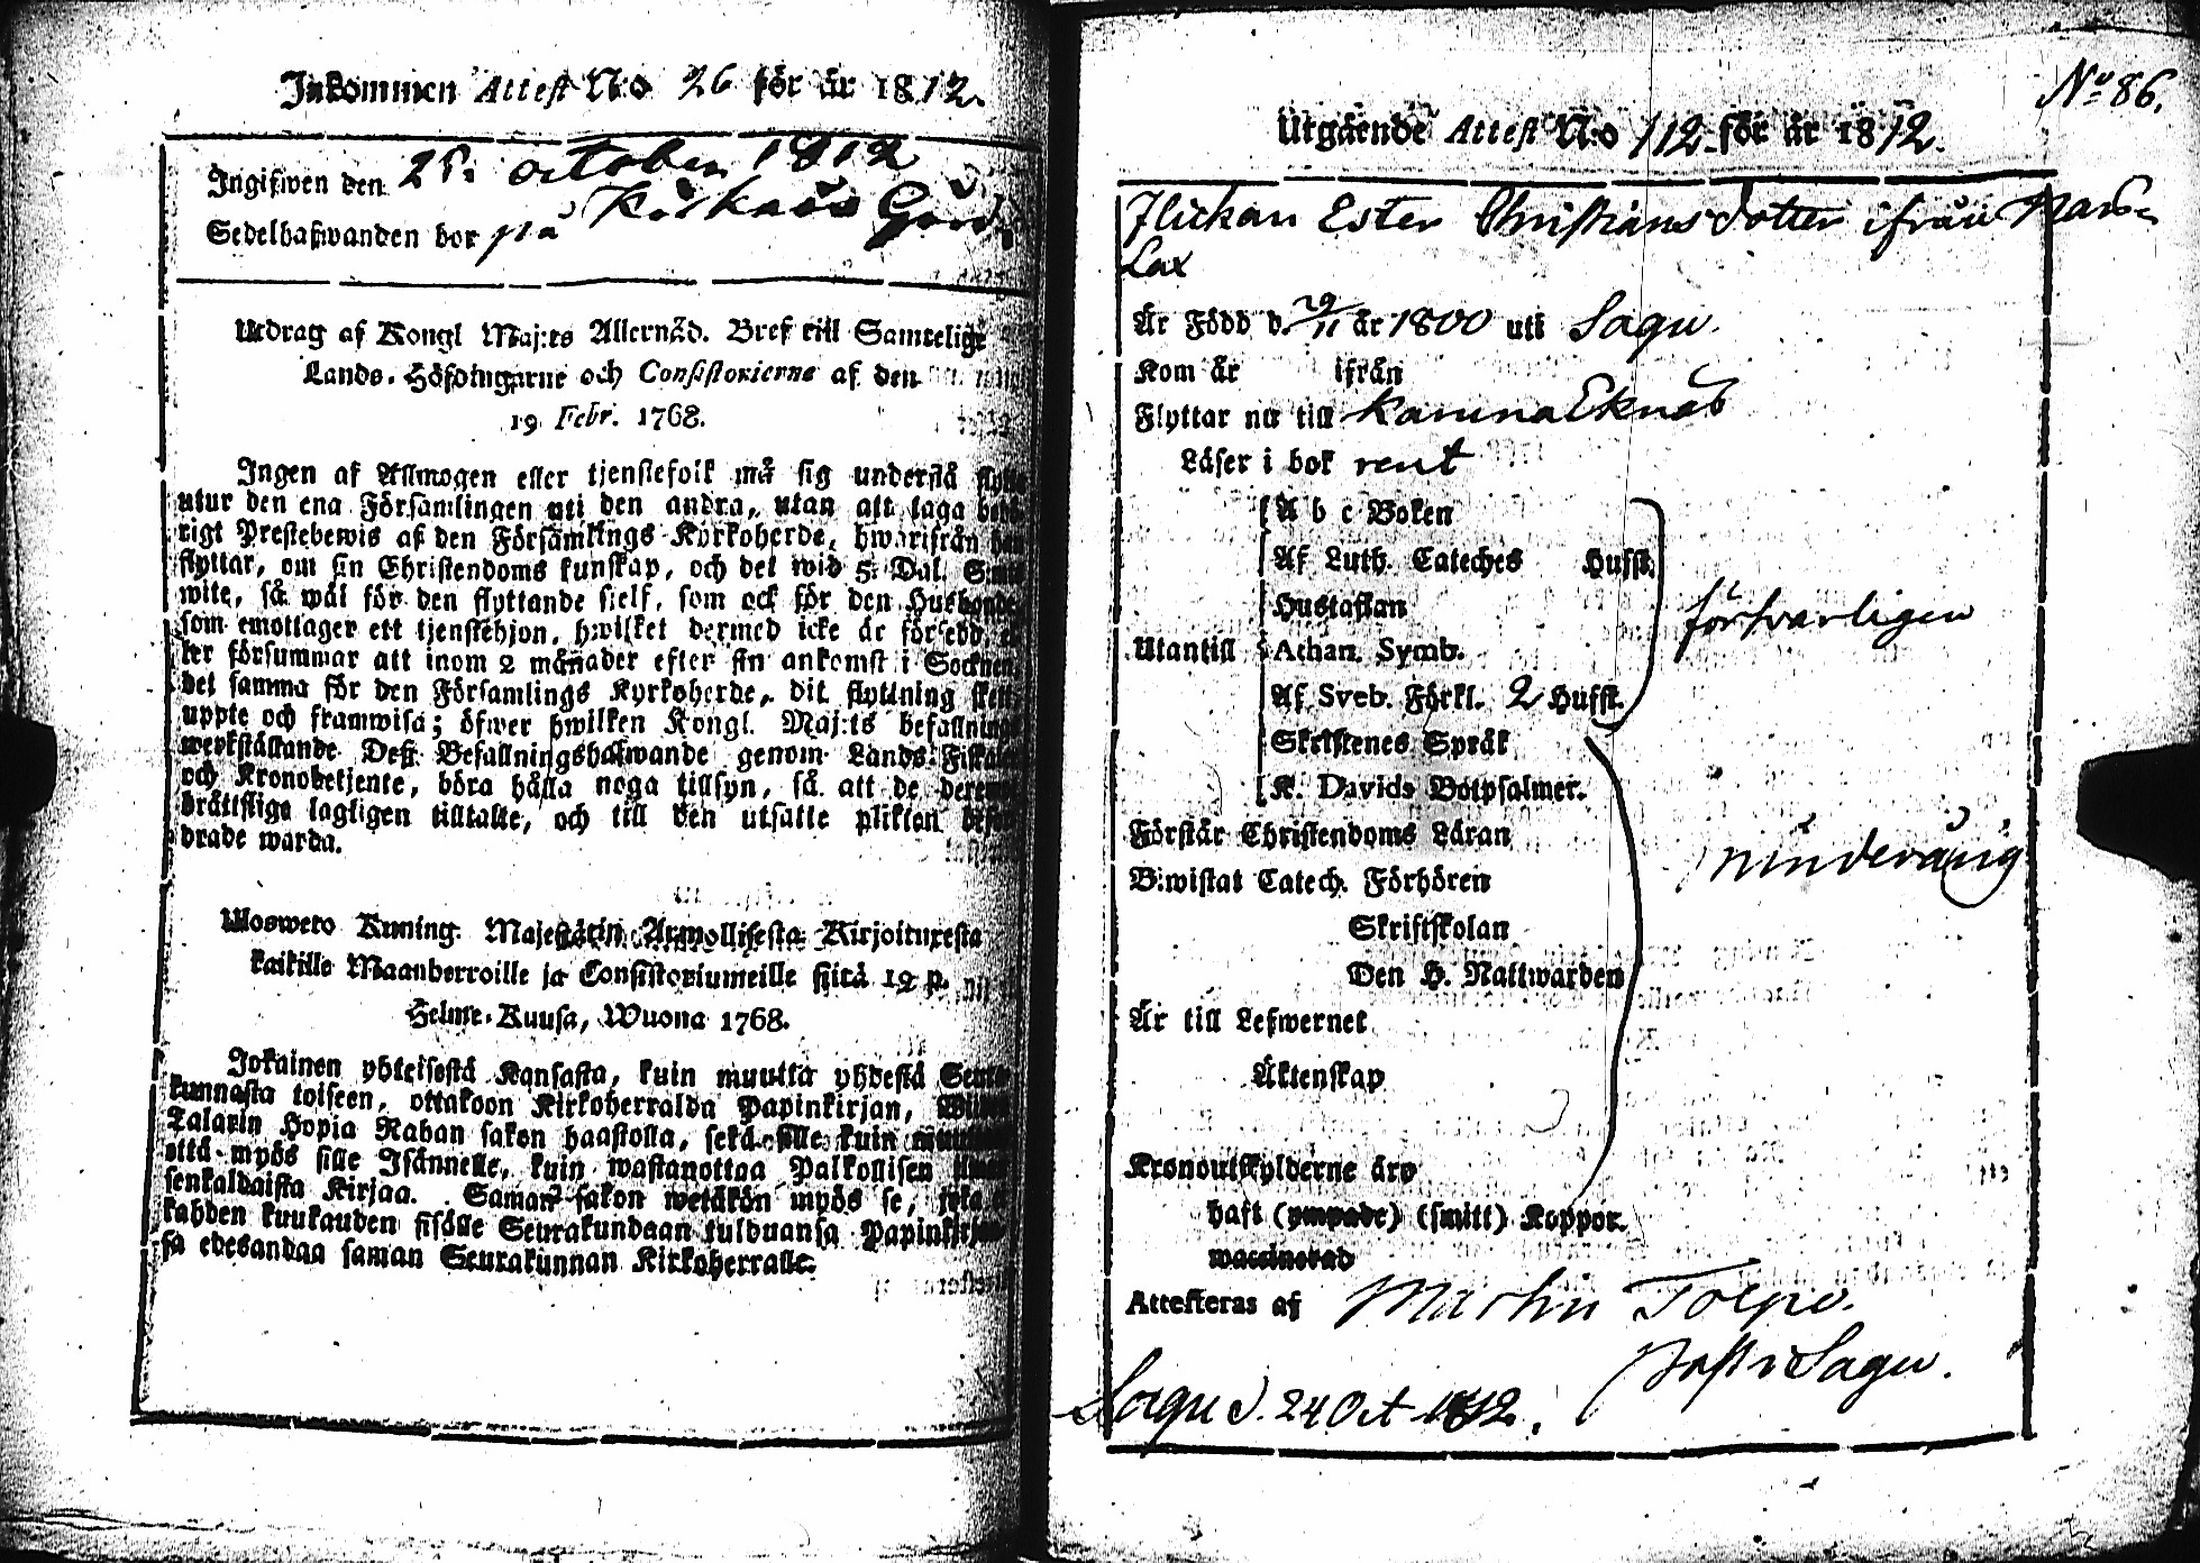 Inkommen Attest N:o 26 för år 1812.
Ingifwen den 28. october 1812
Sedelhafwanden bor på Gård
Utdrag af Kongl Maj:ts Allernåd. Bref till Samtelige
Lands-Höfdingarne och Consistorierne af den
19 Febr. 1768.
Ingen af Allmogen eller tjenstefolk må sig understå flytta
utur den ena Församlingen uti den andra, utan att taga behö-
rigt Prestebewis af den Församlings Kyrkoherde, hwarifrån han
flyttar, om sin Christendoms kunskap, och det wid 5. Dal. S:mts
wite, så wäl för den flyttande sjelf, som ock för den Husbonde
som emottager ett tjenstehjon, hwilket dermed icke är försedd, el-
ler försummar att inom 2 månader efter sin ankomst i Socknen,
det samma för den Församlings Kyrkoherde, dit flyttning skett,
uppte och framwisa; öfwer hwilken Kongl. Maj:ts befallnings
werkställande Deß Befallningshafwande genom Lands-Fiskaler
och Kronobetjente, böra hålla noga tillsyn, så att de deremot
brättslige lagligen tilltalte, och till den utsatte plikten befor-
drade warda.
Uloswero Kuning. Majestätin Armollisesta Kirjoituxesta
kaikille Maanherroille ja Consistoriumeille siitä 19 p.
Helme-Kuusa, Wuona 1768.
Jokainen yhteisestä Kansasta, kuin muutta yhdestä Seura-
kunnasta toiseen, ottakoon Kirkoherralda Papinkirjan, Wiiden
Talarin Hopia Rahan sakon haastolla, sekä sille kuin muuttaa
että myös sille Isännelle, kuin wastanottaa Palkollisen ilman
senkaldaista Kirjaa. Saman sakon wetäkön myös se, joka ei
kahden kuukauden sisälle Seurakundaan tulduansa Papinkirjaan-
sa edesandaa saman Seurakunnan Kirkoherralle.
No 86.
Utgående Attest N:o 112. för år 1812.
Flickan Ester Christians dotter ifrån
Lax
Är Född d. 29/11 år 1800 uti Sagu.
Kom år ifrån
Flyttar nu till Karuna Eknäs
Läser i bok rent
A b c Boken
Af Luth. Cateches Hufst.
Hustaflan
Utantill Athan. Symb.
försvarligen
Af Sveb. Förkl. 2 Hufst.
Skriftenes Språk
K. Davids Botpsalmer.
Förstår Christendoms Läran
minderårig
Biwistat Catech. Förhören
Skriftskolan
Den H. Nattwarden
Är till Lefwernet
Äktenskap
Kronoutskylderne äro
haft (ympade) (smitt) Koppor.
waccinerad
Attesteras af Martin Tolpo.
Past i Sagu.
Sagu d. 24 Oct 1812.